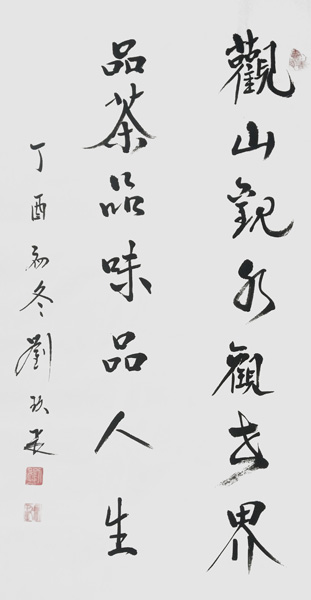 觀山觀水觀世界
品茶品味品人生
丁酉初冬劉